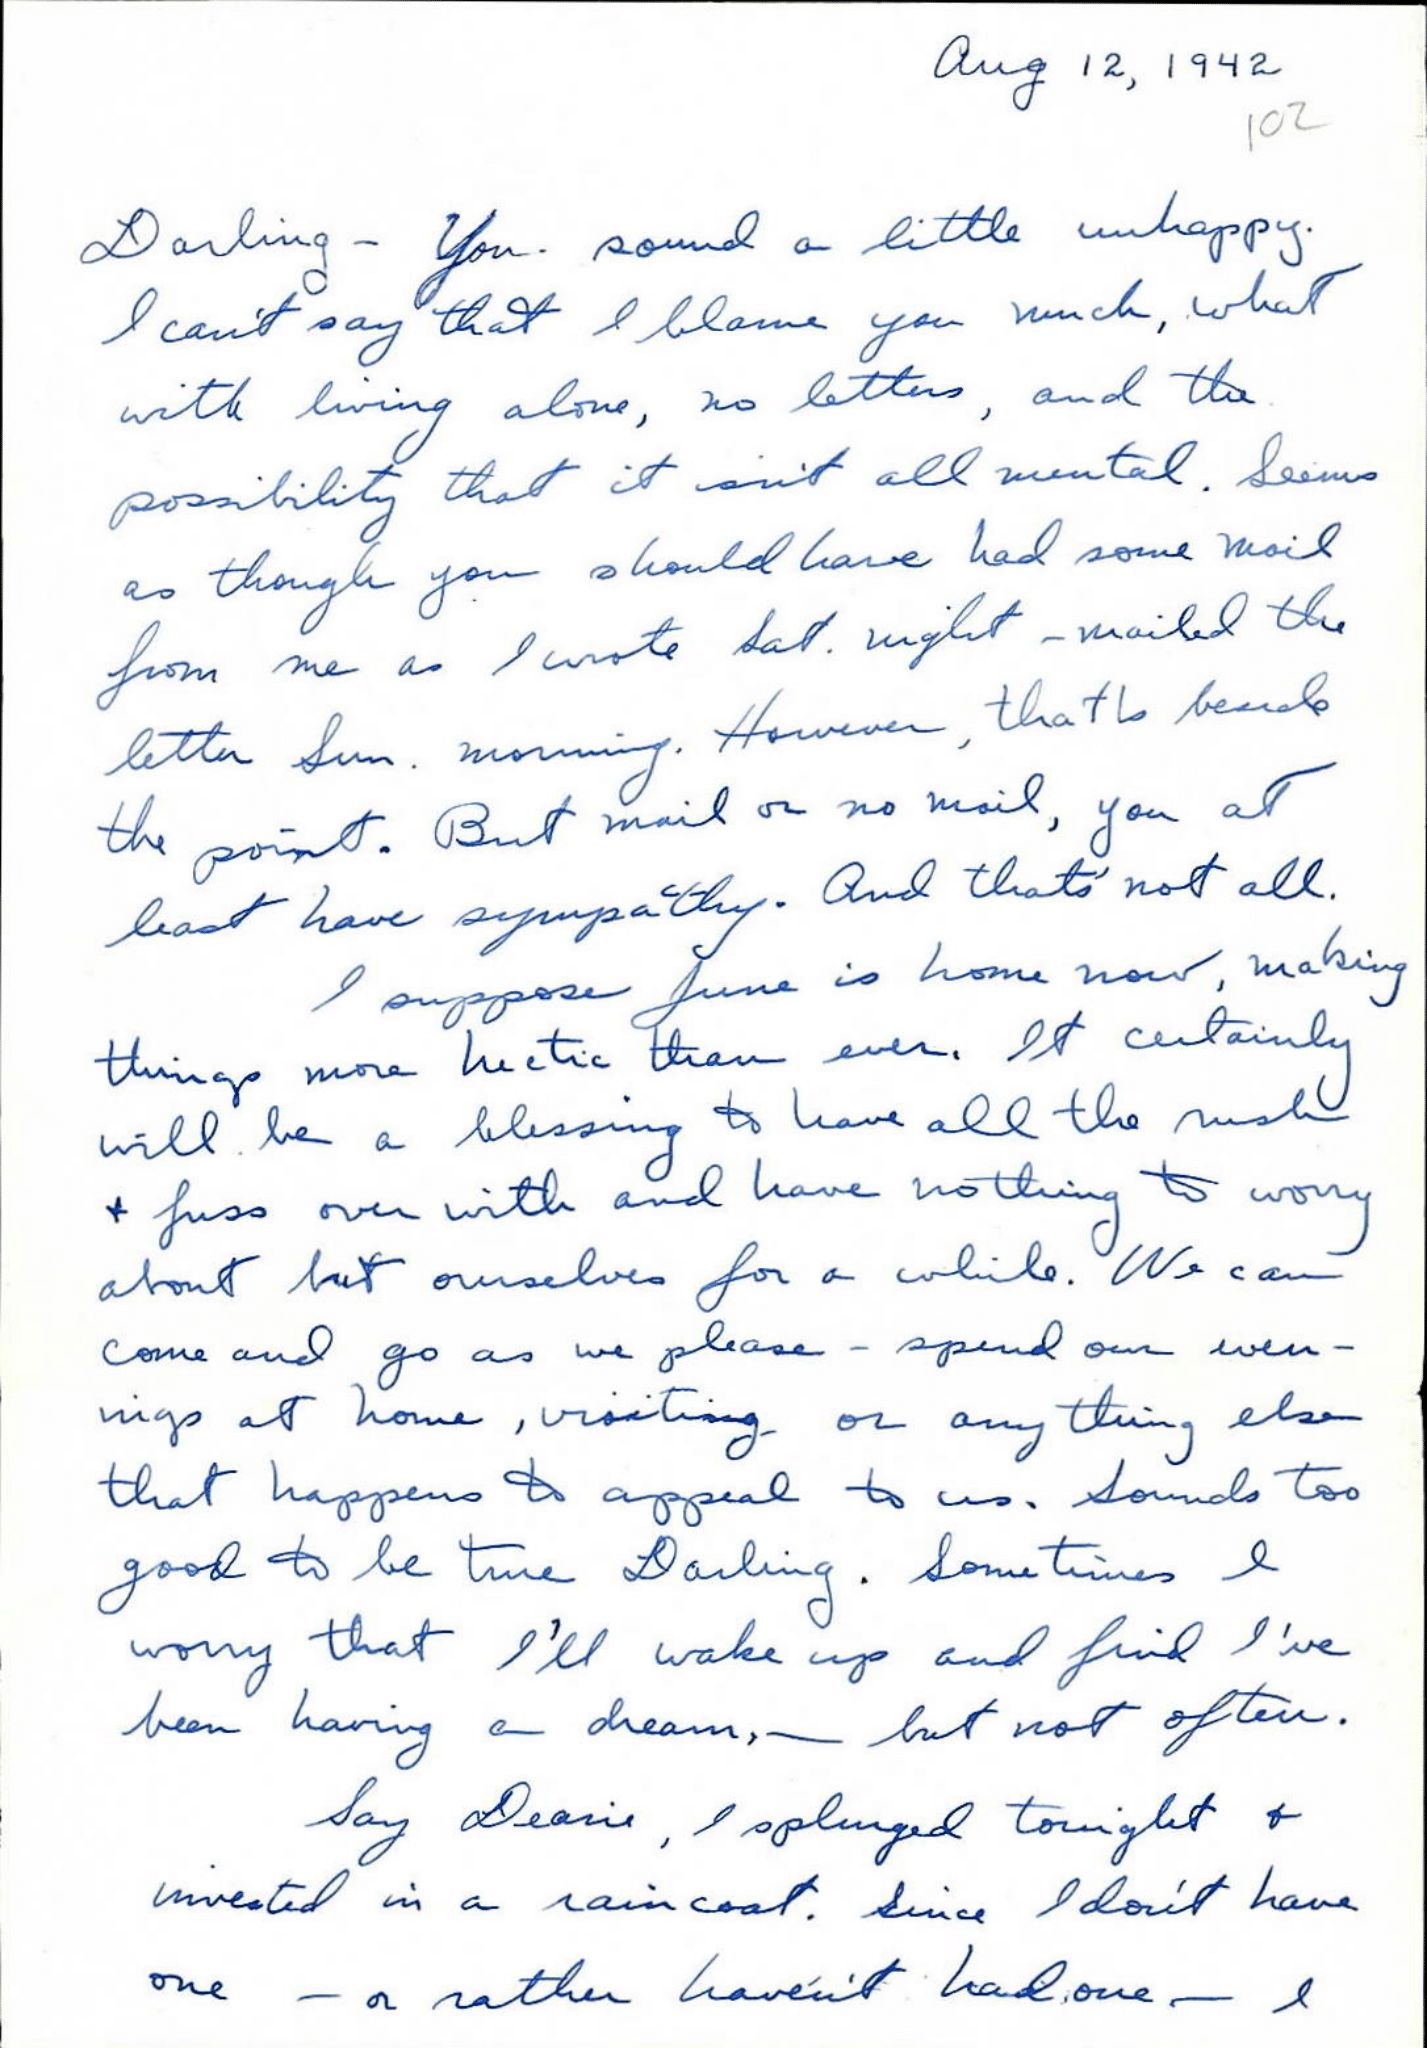 Aug 12, 1942
102
Darling - You sound a little unhappy.
I can't say that I blame you much, what
with living alone, no letters, and the
possibility that it isn't all mental. Seems
as though you should have had some mail
from me as I wrote Sat. night - mailed the
letter Sun. morning. However, that's beside
the point. But mail or no mail, you at
least have sympathy. And that's not all.
I suppose June is home now, making
things more hectic than ever. It certainly
will be a blessing to have all the rush
+ fuss over with and have nothing to worry
about but ourselves for a while. We can
come and go as we please - spend our even-
ings at home, visiting or anything else
that happens to appeal to us. Sounds too
good to be true Darling. Sometimes I
worry that I'll wake up and find I've
been having a dream, — but not often.
Say Dearie, I splurged tonight +
invested in a raincoat. Since I don't have
one — or rather haven't had one — I